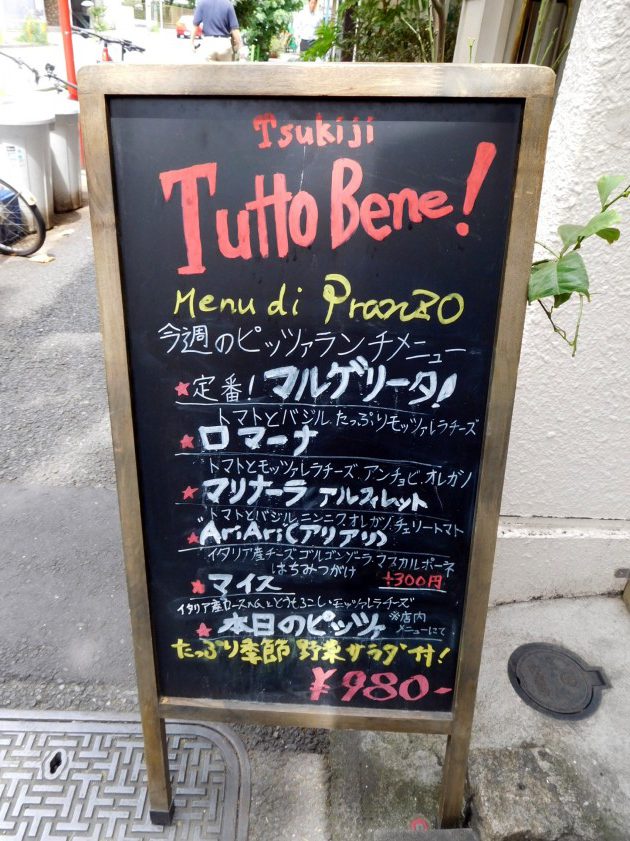 Tsukiji
Tutto Bene!
Menu di Pranzo
今週のピッツァランチメニュー
★定番!マルゲリータ!
トマトとバジル、たっぷりモッツァレラチーズ
★ロマーナ
トマトとモッツァレラチーズ、アンチョビ、オレガノ
★マリナーラ アルフィレット
トマトとバジル、ニンニク、オレガノ、チェリートマト
★AriAri(アリアリ)
イタリア産チーズ、ゴルゴンゾーラ・マスカルポーネ
はちみつがけ +300円
★マイス
イタリア産ロースハムととうもろこし、モッツァレラチーズ
★本日のピッツァ ※店内
メニューにて
たっぷり季節野菜サラダ付!
¥980-